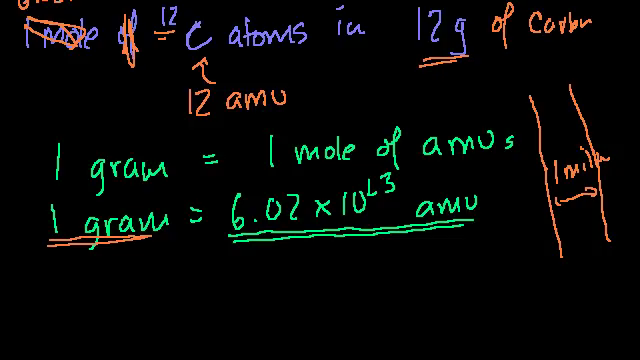 1 mole of 12 C atoms in 12g of Carbon
12 amu
1 gram = 1 mole of amus
1 gram = 6.02 × 10^23 amu
1 mile